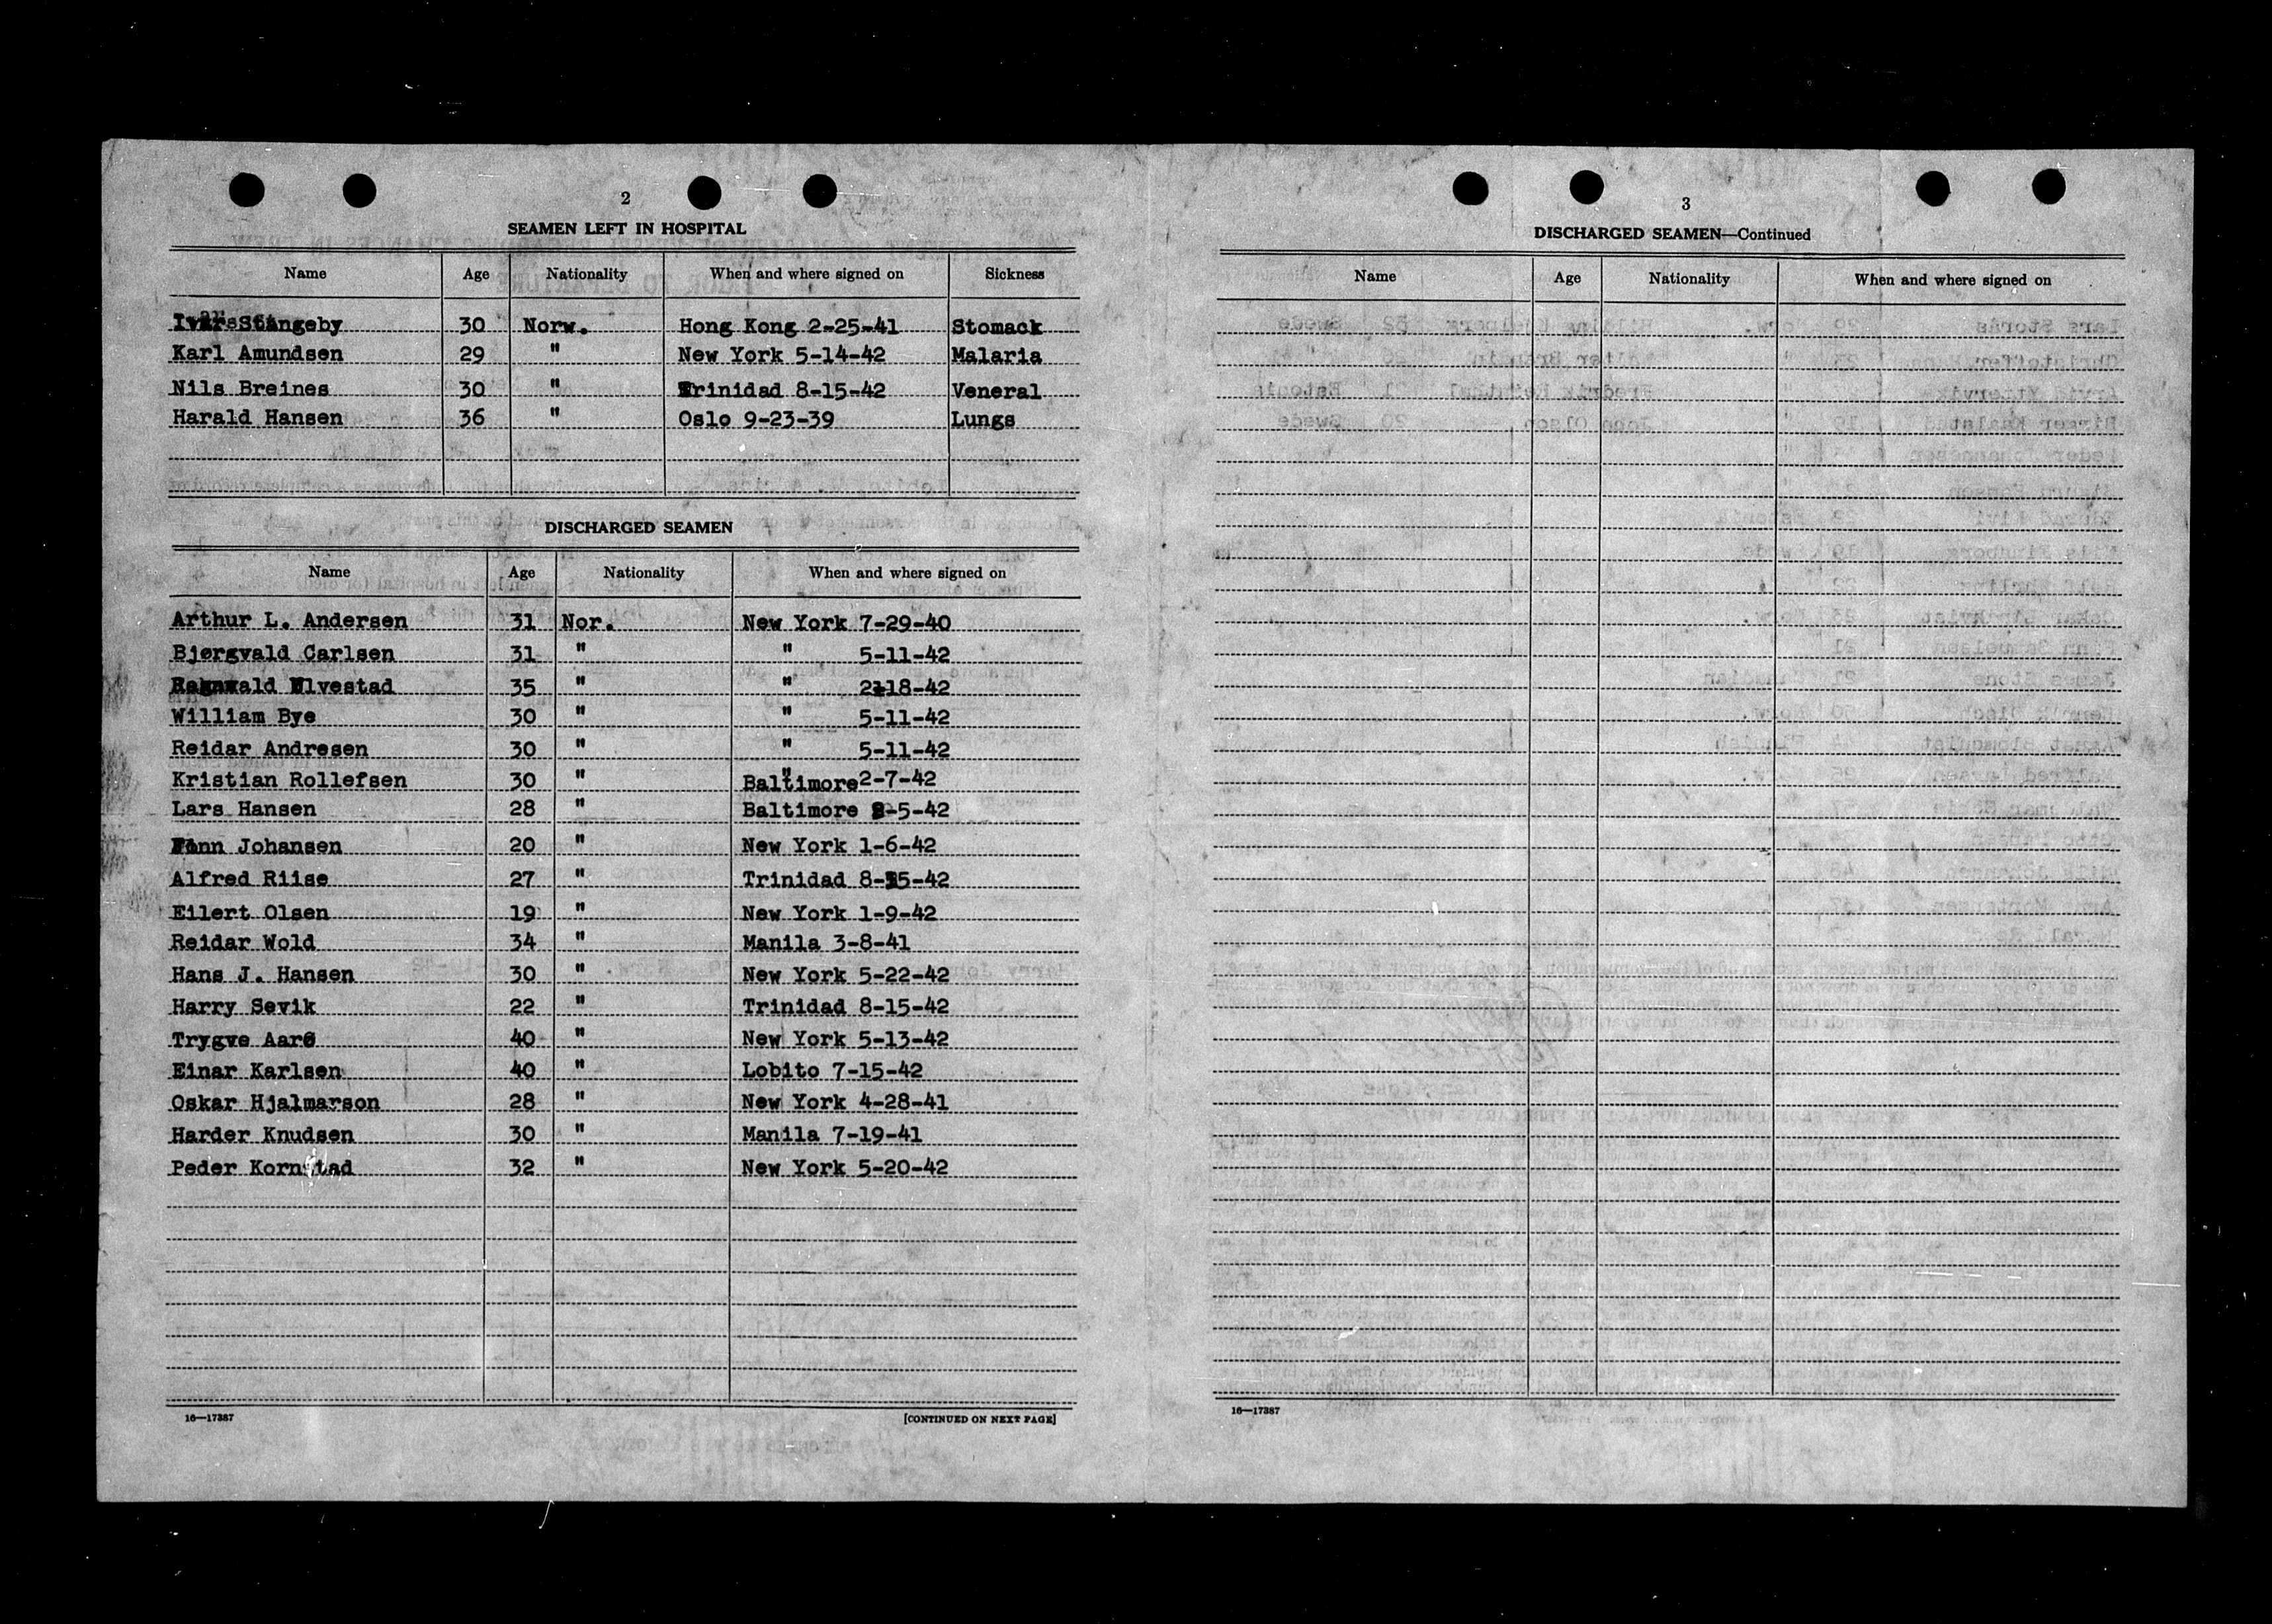 2
SEAMEN LEFT IN HOSPITAL
Name Age Nationality When and where signed on Sickness
Ivar Stangeby 30 Norw. Hong Kong 2-25-41 Stomack
Karl Amundsen 29 " New York 5-14-42 Malaria
Nils Breines 30 " Trinidad 8-15-42 Veneral
Harald Hansen 36 " Oslo 9-23-39 Lungs
DISCHARGED SEAMEN
Name Age Nationality When and where signed on
Arthur L. Andersen 31 Nor. New York 7-29-40
Bjergvald Carlsen 31 " " 5-11-42
Ragnwald Ulvestad 35 " " 2-18-42
William Bye 30 " " 5-11-42
Reidar Andresen 30 " " 5-11-42
Kristian Rollefsen 30 " Baltimore 2-7-42
Lars Hansen 28 " Baltimore -5-42
Finn Johansen 20 " New York 1-6-42
Alfred Riise 27 " Trinidad 8-15-42
Eilert Olsen 19 " New York 1-9-42
Reidar Wold 34 " Manila 3-8-41
Hans J. Hansen 30 " New York 5-22-42
Harry Sevik 22 " Trinidad 8-15-42
Trygve Aarø 40 " New York 5-13-42
Einar Karlsen 40 " Lobito 7-15-42
Oskar Hjalmarson 28 " New York 4-28-41
Harder Knudsen 30 " Manila 7-19-41
Peder Kornstad 32 " New York 5-20-42
16—17387 [CONTINUED ON NEXT PAGE]
3
DISCHARGED SEAMEN—Continued
Name Age Nationality When and where signed on
16—17387